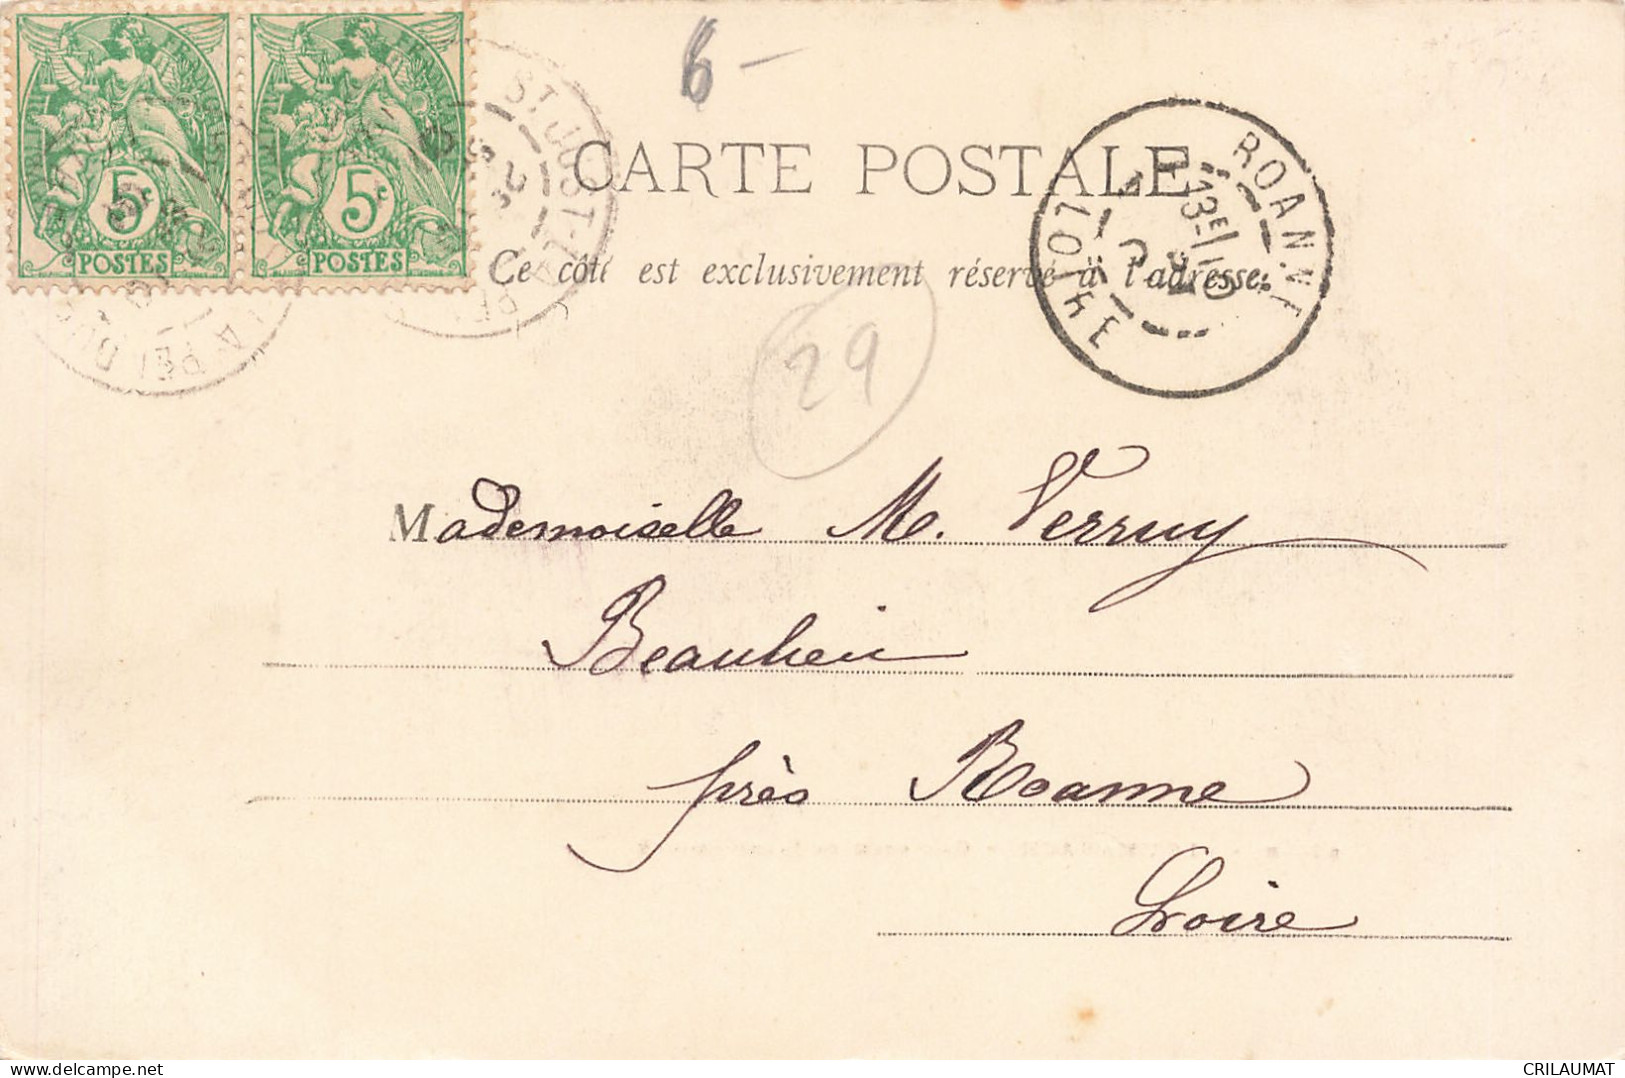 6 -
5c
POSTES
5c
POSTES
ST JUST-LA
ROANNE
LOIRE
CARTE POSTALE
Ce côté est exclusivement réservé à l'adresse.
29
Mademoiselle M. Verruy
Beaulieu
près Roanne
Loire
CRILAUMAT